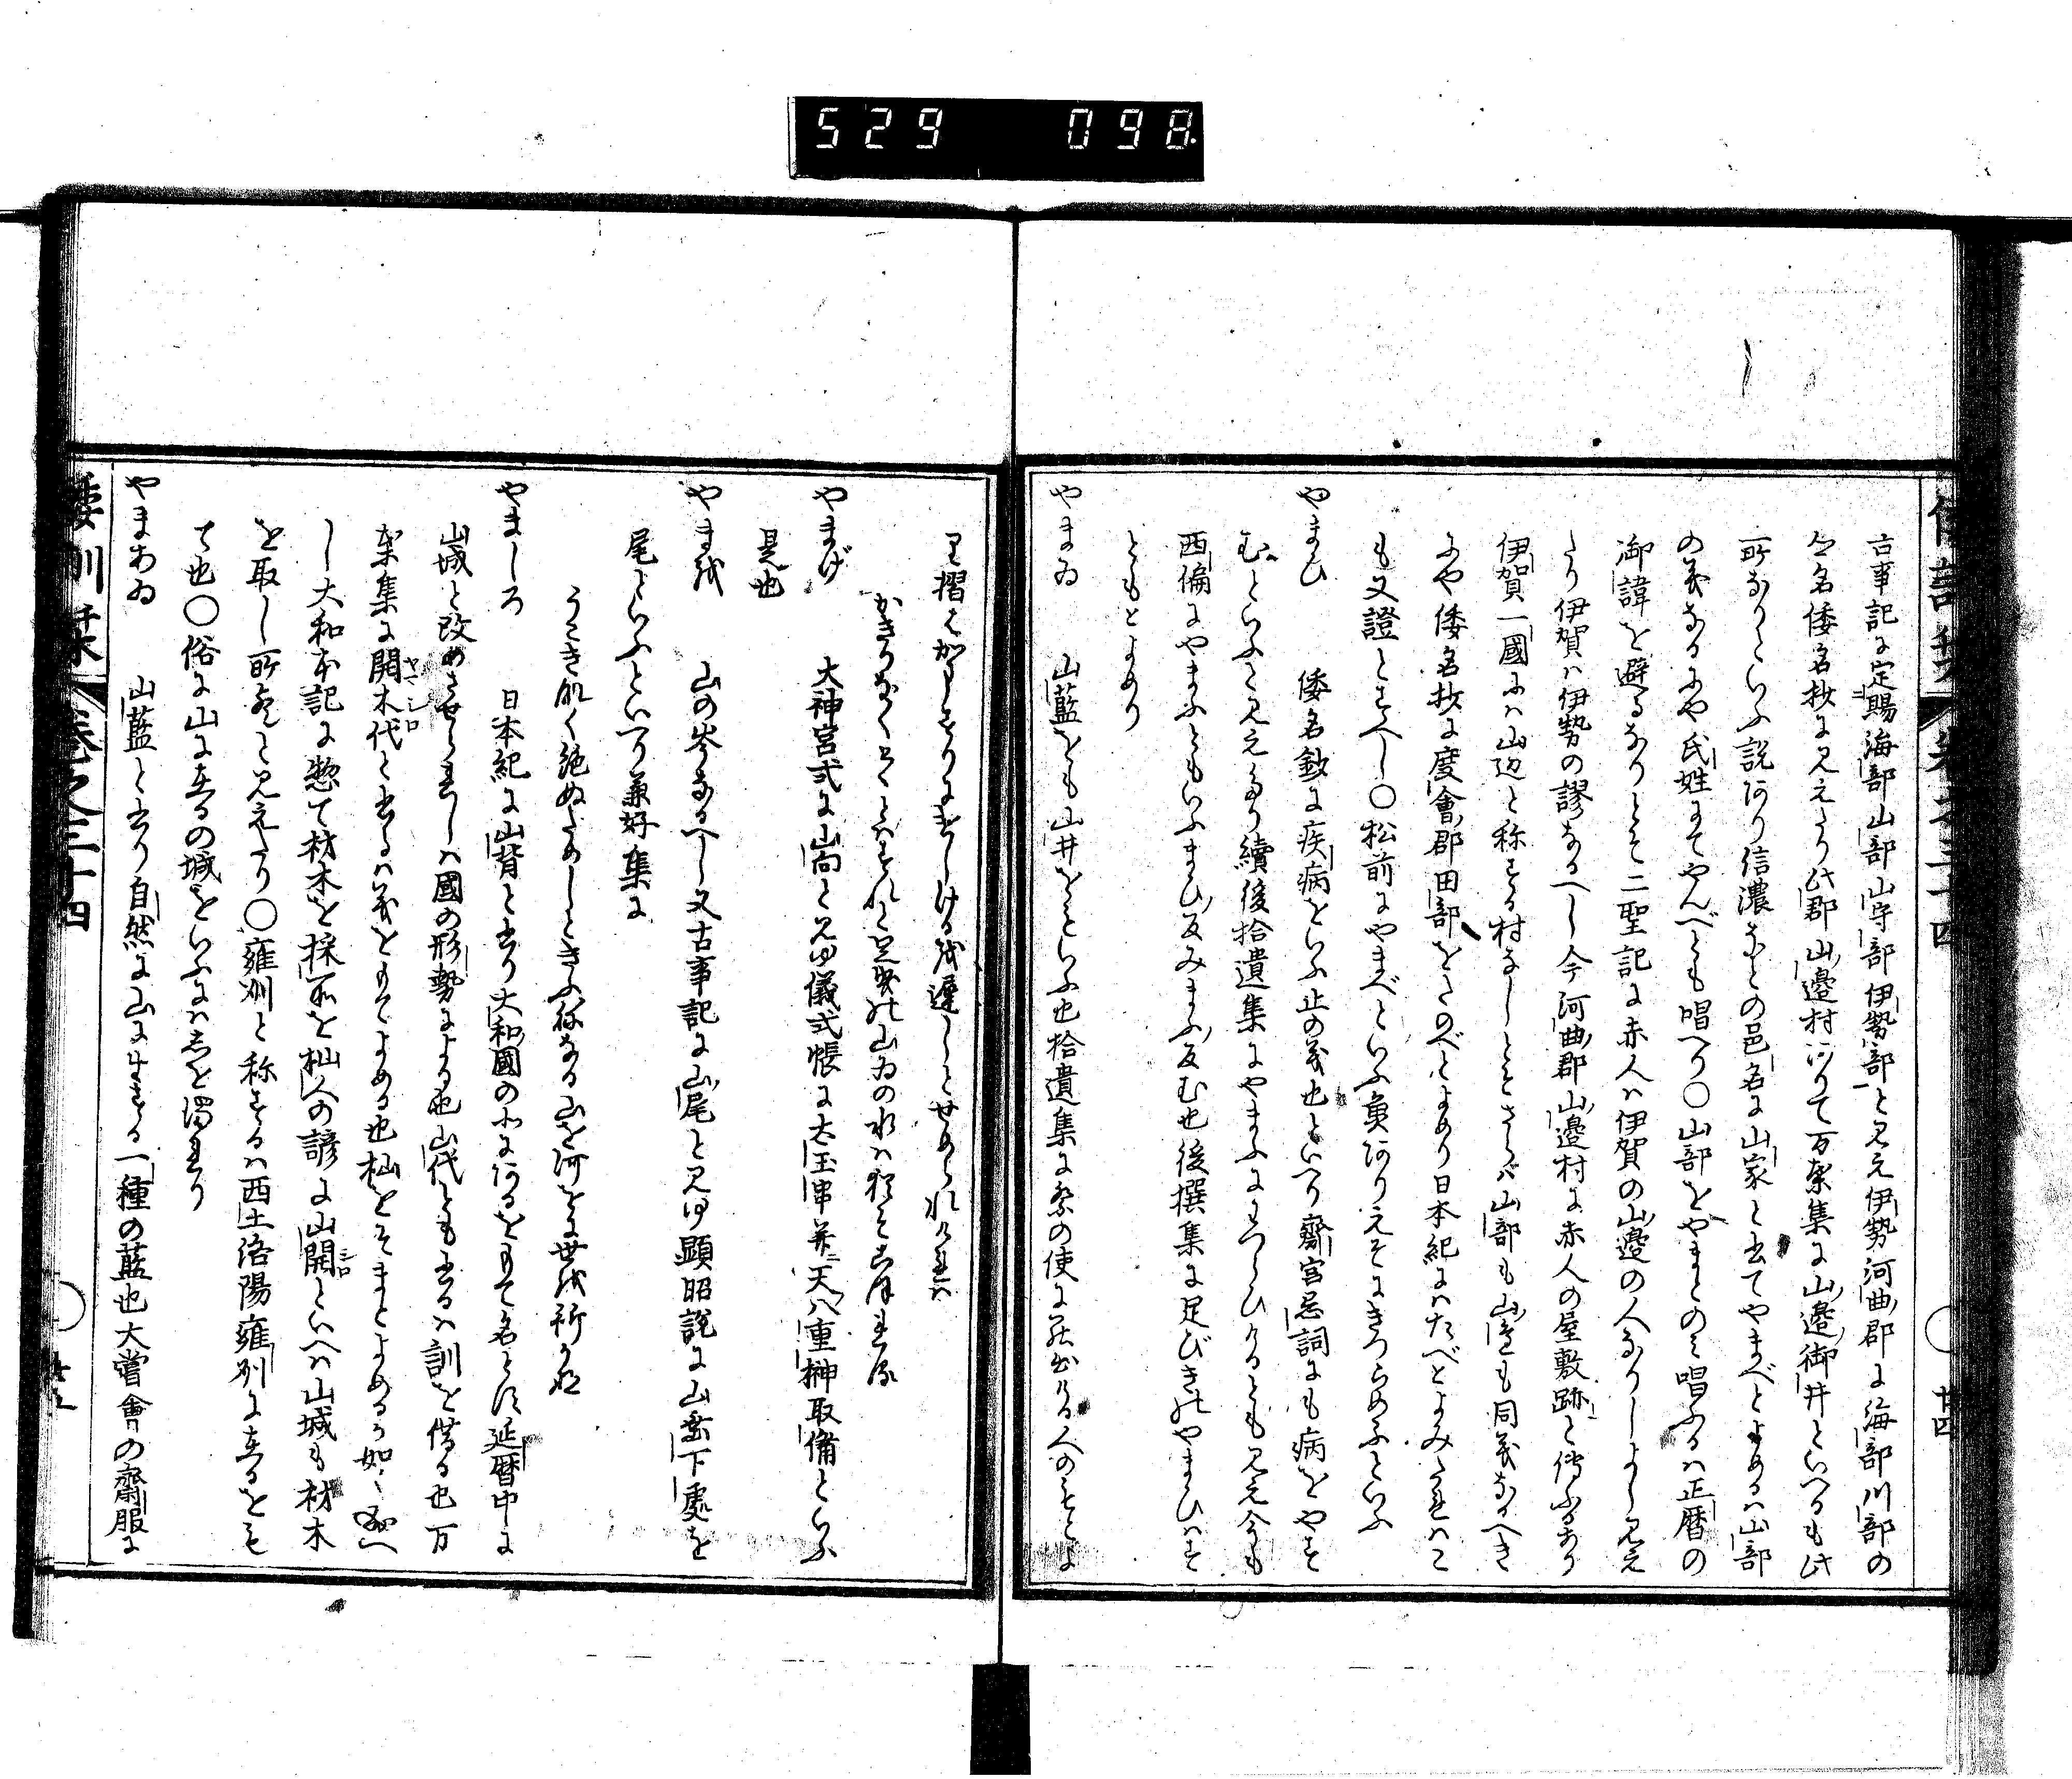 529 098
古事記に定賜海部山部山守部伊勢部と見え伊勢河曲郡に海部川部の
名倭名抄に見えたり此郡山邊村ありて万葉集に山邊御井といへるも此
所なりといふ説あり信濃などの邑名に山家と書てやまべとよめるハ山部
の義なるにや氏姓にてやんべとも唱へり〇山部をやまとのミ唱ふるハ正暦の
御諱を避るなりとそ二聖記に赤人ハ伊賀の山邊の人なりしよし見え
たり伊賀ハ伊勢の謬なるへし今河曲郡山邊村に赤人の屋敷跡と傳ふるあり
伊賀一國にハ山辺と称する村なしとそさらバ山部も山邊も同義なるへき
にや倭名抄に度會郡田部をたのべとよめり日本紀にハたべとよみたれハこ
も又證とすへし〇松前にやまべといふ魚ありえそにきつらめふといふ
やまひ 倭名鈔に疾病をいふ止の義也といへり齋宮忌詞にも病をやす
むといふと見えたり續後拾遺集にやまふにわつらひけるとも見え今も
西偏にやまふともいふまひ反みまふ反む也後撰集に足びきのやまひハす
ともとよめり
やまゐ 山藍をも山井をもいふ也拾遺集に祭の使にて出ける人のもとよ
り摺はかますりにおこしける遲しとせめられけれハ
かきりなくとくとハすれと足曳の山ゐの水ハ猶そこほれる
やまげ 大神宮式に山向と見ゆ儀式帳に太玉串并ニ天八重榊取備といふ
是也
やまを 山の岑なるへし又古事記に山尾と見ゆ顕昭説に山垂下處を
尾といふといへり兼好集に
うこき那く絶ぬためしときみかなる山を河をに世を祈るかな
やましろ 日本紀に山背と書り大和國の北にあるをもて名とす延暦中に
山城と改めさせらるゝハ國の形勢による也山代とも書るハ訓を借る也万
葉集に開木代と書るハ義をもてよめる也杣をそまとよめるか如し
し大和本記に惣て材木を採所を杣人の諺に山開といへハ山城も材木
を取し所也と見えたり〇雍州と称するハ西土洛陽雍州に在るをも
て也〇俗に山に在るの城をいふにハしを濁れり
やまあゐ 山藍と書り自然に山に生する一種の藍也大嘗會の齋服に
倭訓栞 卷之三十四
廿四